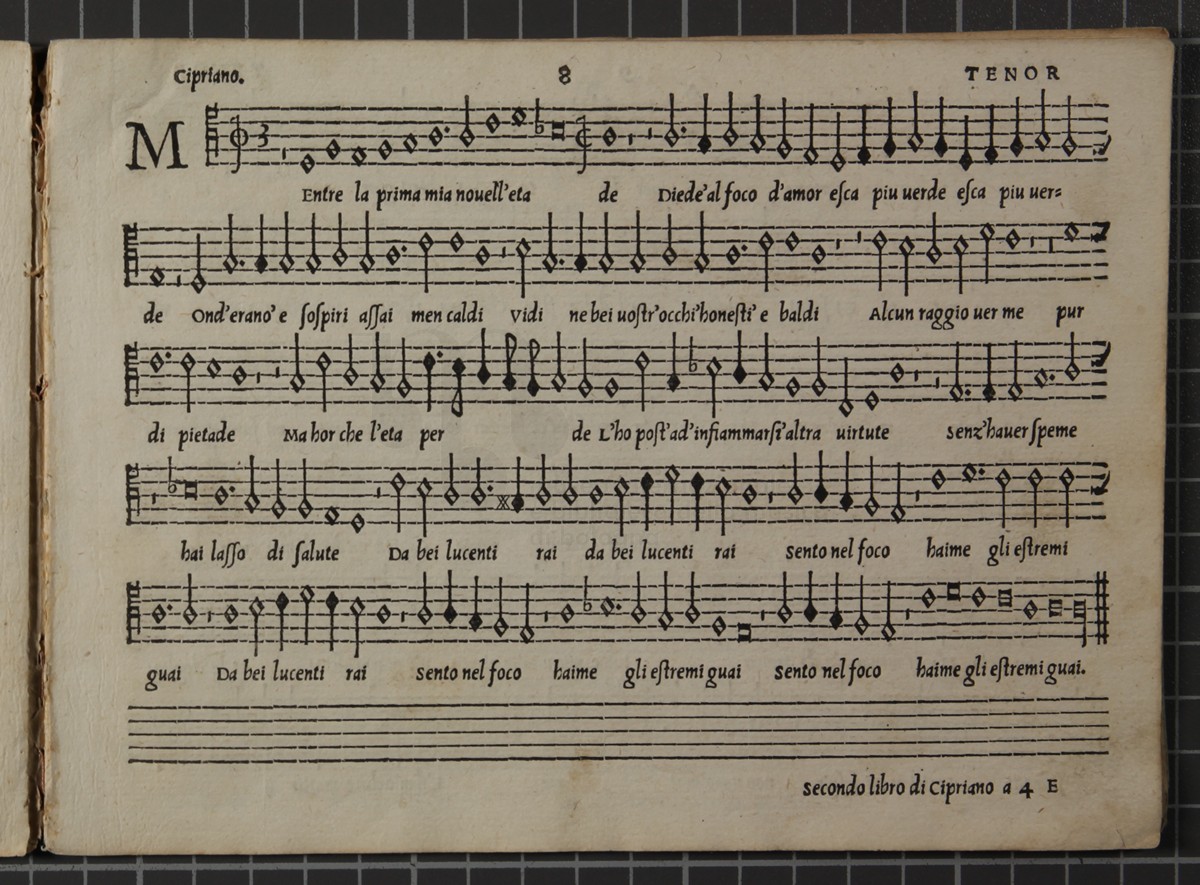 Cipriano. 8 TENOR
MEntre la prima mia nouell'eta de Diede'al foco d'amor eſca piu uerde eſca piu uer=
de Ond'erano' e ſoſpiri aſſai men caldi Vidi ne bei uoſtr'occhi'honeſti' e baldi Alcun raggio uer me pur
di pietade Ma hor che l'eta per de L'ho poſt'ad'infiammarſi'altra uirtute Senz'hauer ſpeme
hai laſſo di ſalute Da bei lucenti rai da bei lucenti rai Sento nel foco haime gli eſtremi
guai Da bei lucenti rai Sento nel foco haime gli eſtremi guai Sento nel foco haime gli eſtremi guai.
Secondo libro di Cipriano a 4 E